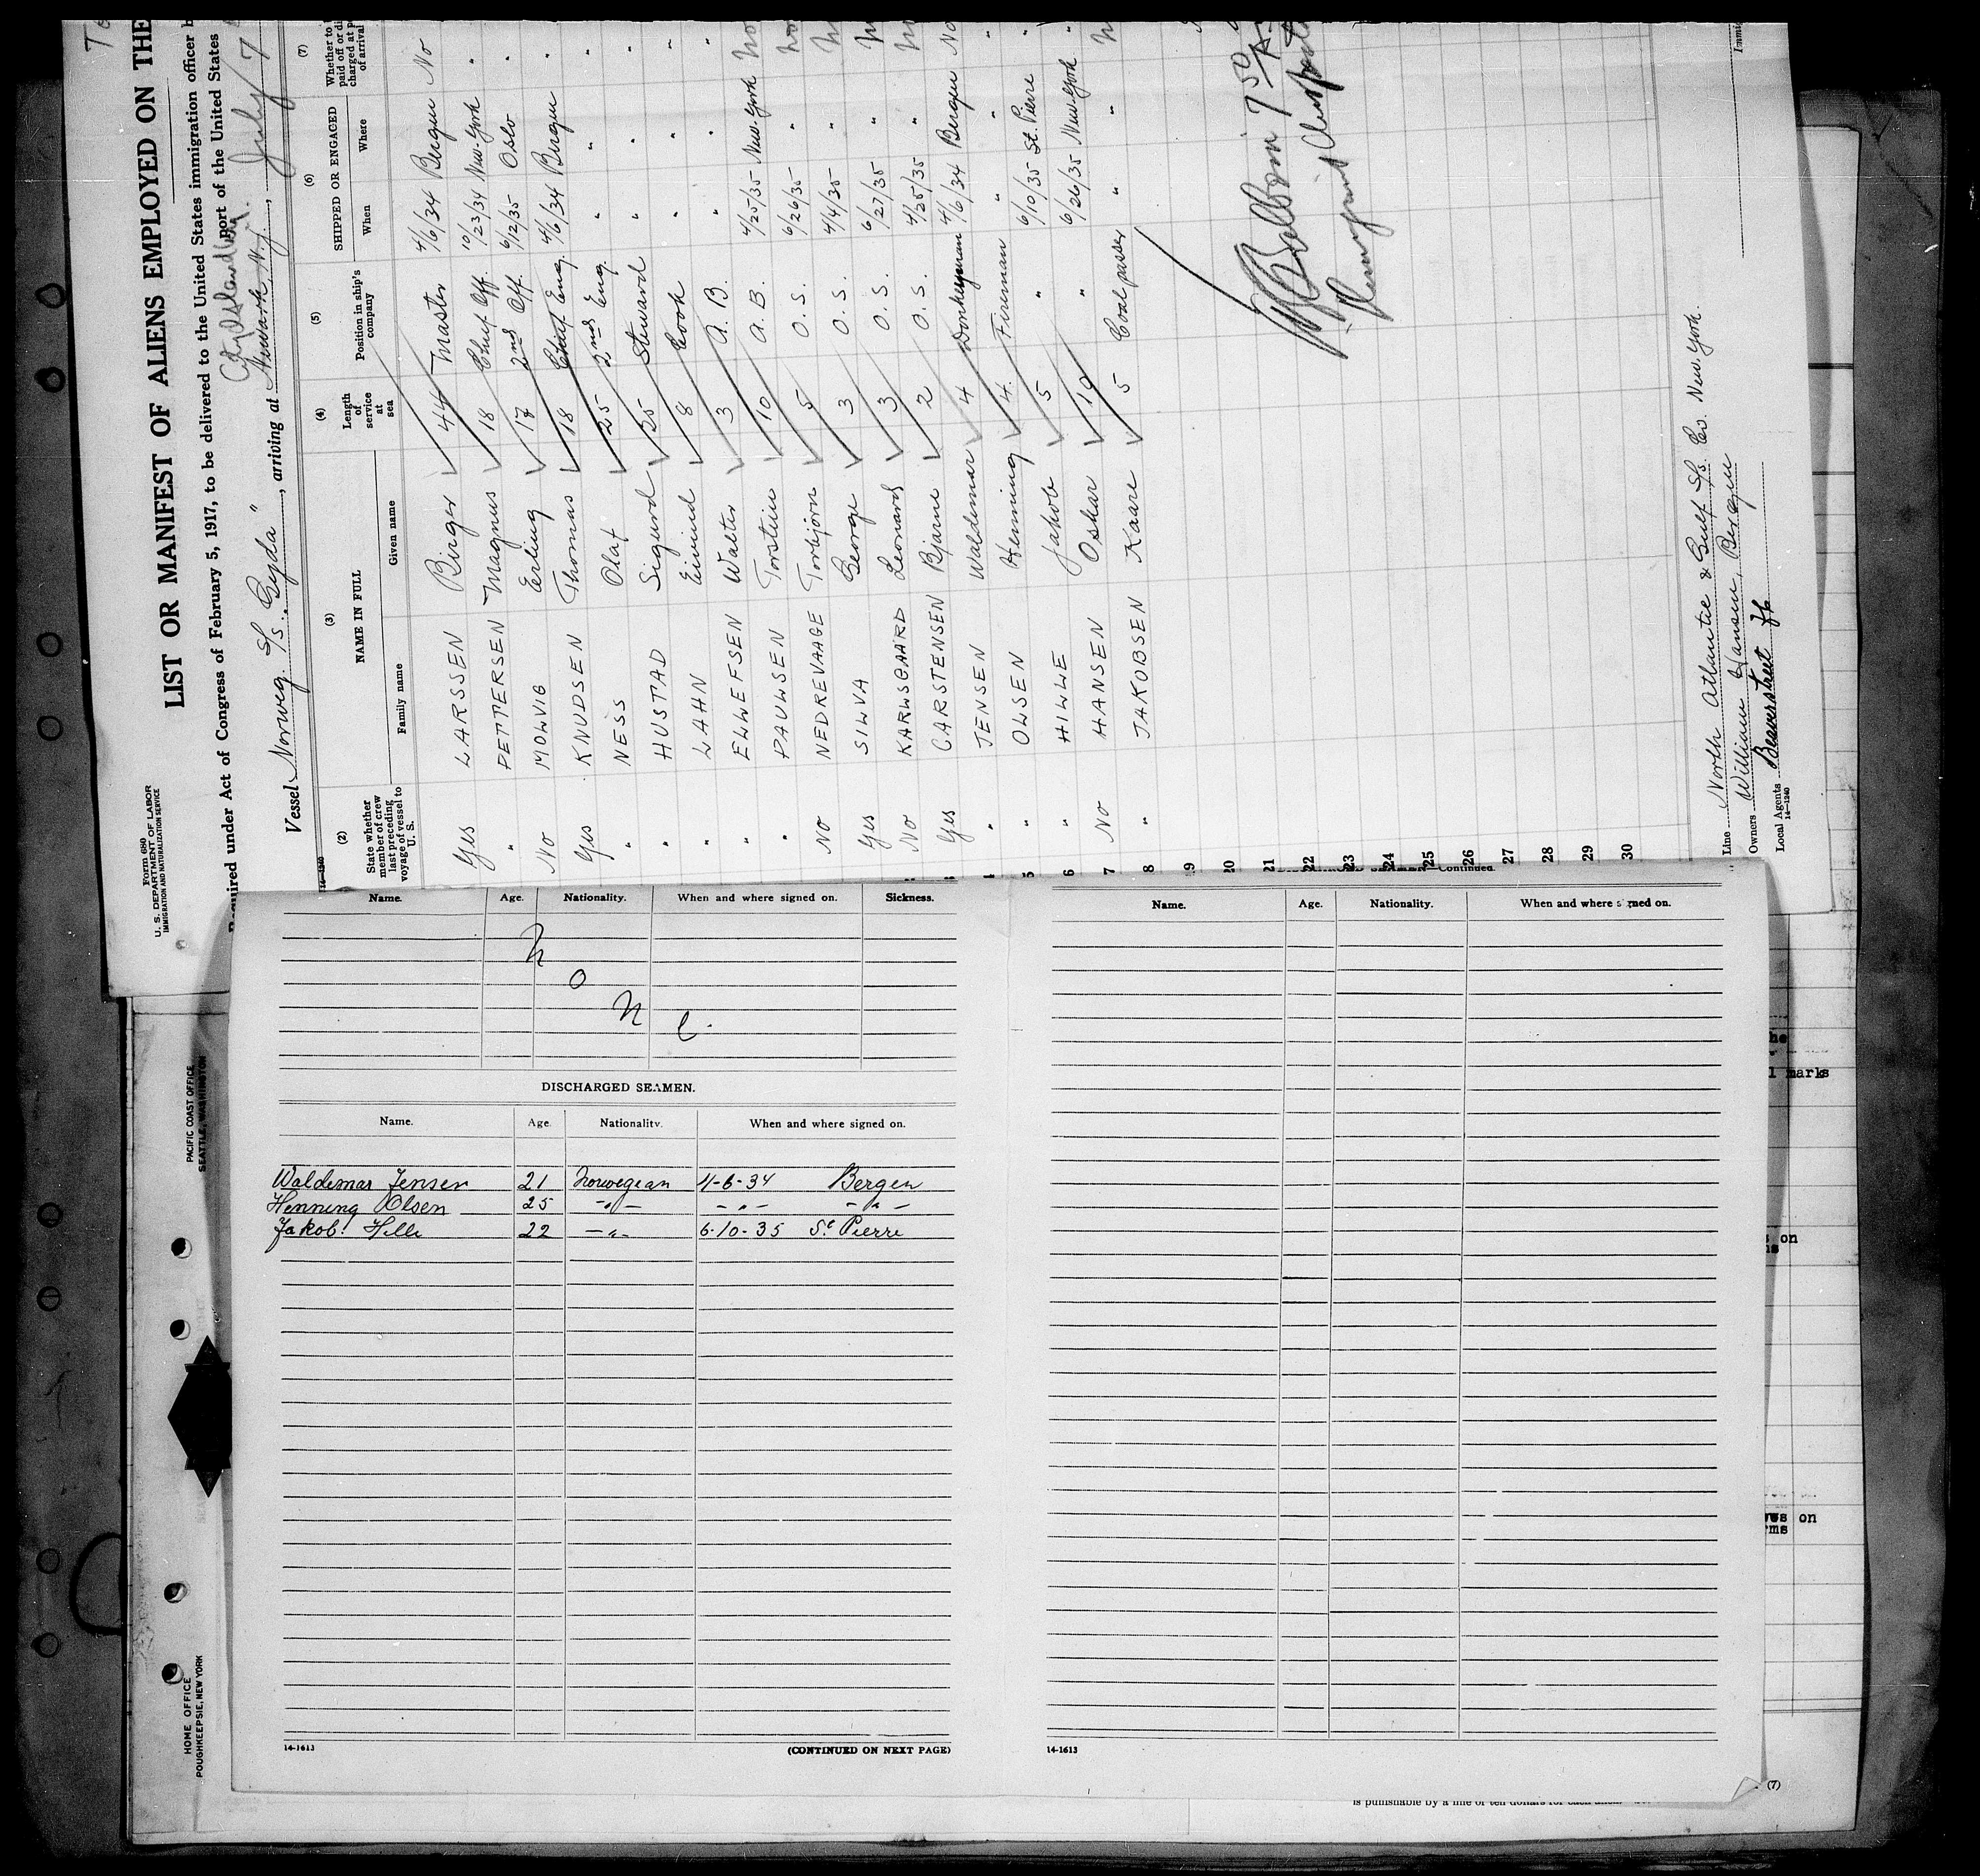 Form 680
U. S. DEPARTMENT OF LABOR
IMMIGRATION AND NATURALIZATION SERVICE
LIST OR MANIFEST OF ALIENS EMPLOYED ON THE
Required under Act of Congress of February 5, 1917, to be delivered to the United States immigration officer
port of the United States
Vessel Norweg. S/s. "Gyda", arriving at Newark, N.J., July 7
(2) (3) (4) (5) (6) (7)
State whether member of crew last preceding voyage of vessel to U. S.
NAME IN FULL
Family name Given name
Length of service at sea
Position in ship's company
SHIPPED OR ENGAGED
When Where
Whether to paid off or charged at of arrival
Yes LARSSEN Birger 44 Master 4/6/34 Bergen No
" PETTERSEN Magnus 18 Chief Off. 10/23/34 New-York "
No MOLVIG Erling 17 2nd Off. 6/12/35 Oslo "
Yes KNUDSEN Thomas 18 Chief Eng. 4/6/34 Bergen "
" NESS Olaf 25 2nd Eng. " " "
" HUSTAD Sigurd 25 Steward " " "
" LAHN Eivind 8 Cook " " "
" ELLEFSEN Walter 3 A. B. " " "
" PAULSEN Torstein 10 A. B. 4/25/35 New-York No
No NEDREVAAGE Torbjörn 5 O. S. 6/26/35 " No
Yes SILVA George 3 O. S. 4/4/35 "
No KARLSGAARD Leonard 3 O. S. 6/27/35 "
Yes CARSTENSEN Bjarne 2 O. S. 4/25/35 "
" JENSEN Waldemar 4 Donkeyman 4/6/34 Bergen No
" OLSEN Henning 4 Fireman " " "
" HILLE Jakob 5 " 6/10/35 St. Pierre "
No HANSEN Oskar 19 " 6/26/35 New-York "
" JAKOBSEN Kaare 5 Coal passer " "
19
20
21
22
23
24
25
26
27
28
29
30
Line North Atlantic & Gulf S/s. Co. New-York.
Owners William Hansen, Bergen
Local Agents Beaverstreet
14-1240
Name. Age. Nationality. When and where signed on. Sickness.
N
o
n
e.
DISCHARGED SEAMEN.
Name. Age. Nationality. When and where signed on.
Waldemar Jensen 21 Norwegian 4-6-34 Bergen
Henning Olsen 25 -"- -"- -"-
Jakob Hille 22 -"- 6-10-35 St Pierre
14-1613
(CONTINUED ON NEXT PAGE)
Continued
Name. Age. Nationality. When and where signed on.
14-1613
(7)
PACIFIC COAST OFFICE
SEATTLE, WASHINGTON
HOME OFFICE
POUGHKEEPSIE, NEW YORK
marks
on
on
is punishable by a fine of ten dollars for each alien